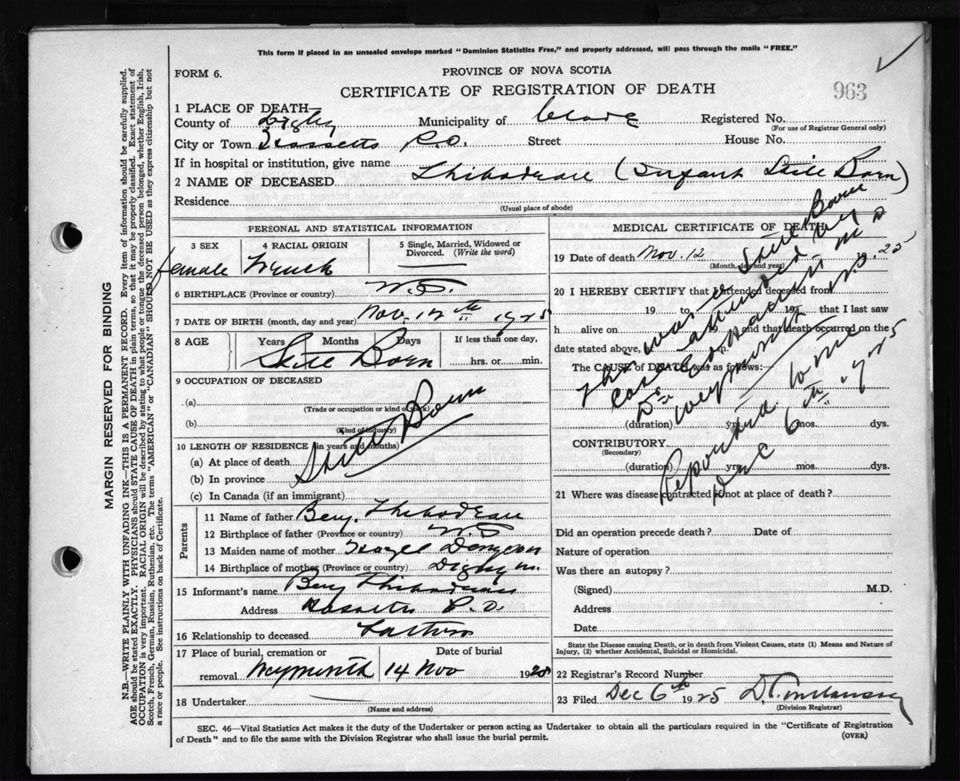 This form if placed in an unsealed envelope marked "Dominion Statistics Free," and property addressed, will pass through the mails "FREE."
FORM 6.
PROVINCE OF NOVA SCOTIA
CERTIFICATE OF REGISTRATION OF DEATH
963
1 PLACE OF DEATH—
County of Digby Municipality of Clare Registered No.
(For use of Registrar General only)
City or Town P.O. Street House No.
If in hospital or institution, give name
2 NAME OF DECEASED Thibodeau (Infant Still Born)
Residence
(Usual place of abode)
PERSONAL AND STATISTICAL INFORMATION
3 SEX 4 RACIAL ORIGIN 5 Single, Married, Widowed or Divorced. (Write the word)
female French —
6 BIRTHPLACE (Province or country)
7 DATE OF BIRTH (month, day and year) Nov. 12th 1925
8 AGE Years Months Days If less than one day,
Still Born hrs. or min.
9 OCCUPATION OF DECEASED
(a)
(Trade or occupation or kind of work)
(b)
(Kind of industry)
Still Born
10 LENGTH OF RESIDENCE (in years and months)
(a) At place of death
(b) In province
(c) In Canada (if an immigrant)
Parents
11 Name of father Benj. Thibodeau
12 Birthplace of father (Province or country)
13 Maiden name of mother
14 Birthplace of mother (Province or country) Digby
15 Informant's name Benj Thibodeau
Address P.O.
16 Relationship to deceased
17 Place of burial, cremation or removal Date of burial
Weymouth 14 Nov 1925
18 Undertaker
(Name and address)
MEDICAL CERTIFICATE OF DEATH
19 Date of death Nov. 12 25
(Month, day and year)
20 I HEREBY CERTIFY that I attended deceased from
19 to 19 that I last saw
h alive on 19 and that death occurred on the
date stated above, at
The CAUSE of DEATH was as follows:
This was a Still Born
case attended by
Dr M D
Weymouth N.S.
Reported to me
Dec 6th 1925
(duration) yrs. mos. dys.
CONTRIBUTORY
(Secondary)
(duration) yrs. mos. dys.
21 Where was disease contracted if not at place of death?
Did an operation precede death? Date of
Nature of operation
Was there an autopsy?
(Signed) M.D.
Address
Date
State the Disease causing Death, or in death from Violent Causes, state (1) Means and Nature of Injury, (2) whether Accidental, Suicidal or Homicidal.
22 Registrar's Record Number
23 Filed Dec 6th 1925
(Division Registrar)
SEC. 46—Vital Statistics Act makes it the duty of the Undertaker or person acting as Undertaker to obtain all the particulars required in the "Certificate of Registration
of Death" and to file the same with the Division Registrar who shall issue the burial permit.
(OVER)
MARGIN RESERVED FOR BINDING
N.B.—WRITE PLAINLY WITH UNFADING INK—THIS IS A PERMANENT RECORD. Every item of information should be carefully supplied.
AGE should be stated EXACTLY. PHYSICIANS should STATE CAUSE OF DEATH in plain terms, so that it may be properly classified. Exact statement of
OCCUPATION is very important. RACIAL ORIGIN will be described by stating to what people or tongue the deceased person belonged, whether English, Irish,
Scotch, French, German, Russian, Ruthenian, etc. The terms "AMERICAN" or "CANADIAN" SHOULD NOT BE USED as they express citizenship but not
a race or people. See instructions on back of Certificate.